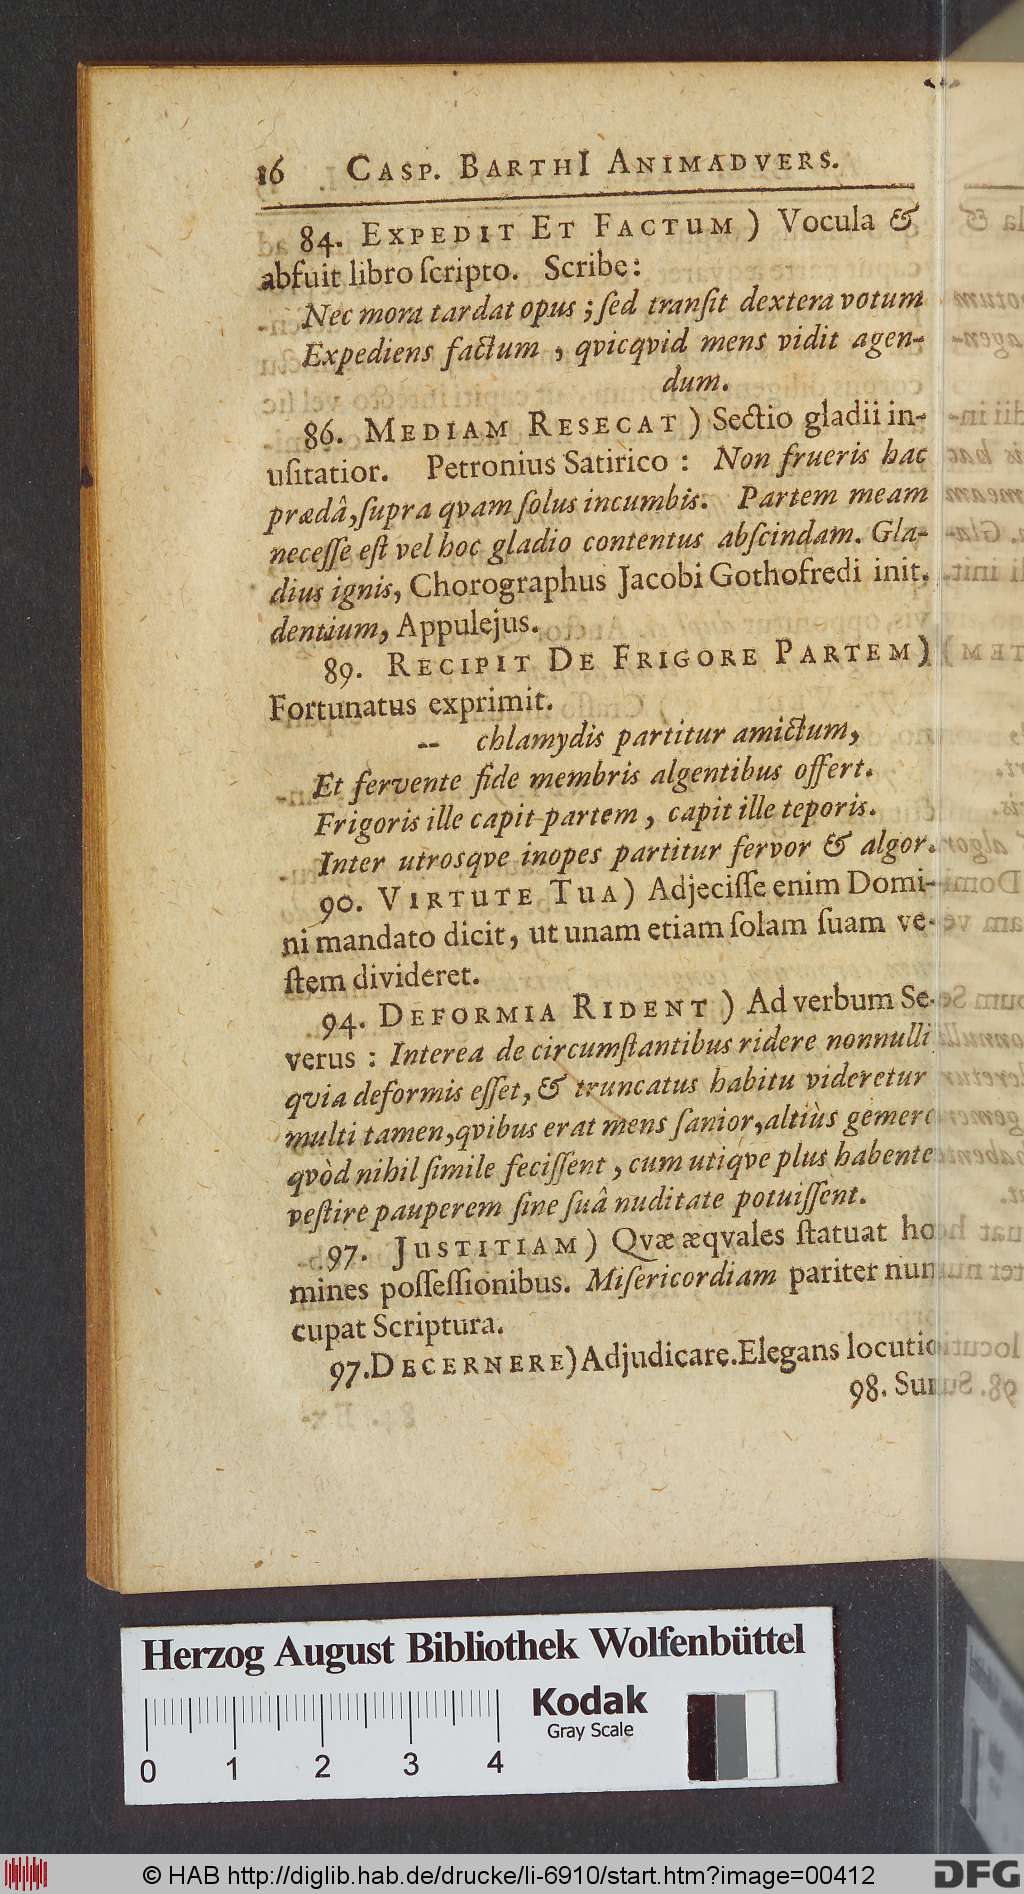 16 CASP. BARTHI ANIMADVERS.
84. EXPEDIT ET FACTUM) Vocula &
abfuit libro ſcripto. Scribe:
Nec mora tardat opus; ſed tranſit dextera votum
Expediens factum, qvicqvid mens vidit agen-
dum.
86. MEDIAM RESECAT) Sectio gladii in-
uſitatior. Petronius Satirico: Non frueris hac
prædâ, ſupra qvam ſolus incumbis. Partem meam
neceſſe eſt vel hoc gladio contentus abſcindam. Gla-
dius ignis, Chorographus Jacobi Gothofredi init.
dentium, Appulejus.
89. RECIPIT DE FRIGORE PARTEM)
Fortunatus exprimit.
-- chlamydis partitur amictum,
Et fervente fide membris algentibus offert.
Frigoris ille capit partem, capit ille teporis.
Inter utrosqve inopes partitur fervor & algor.
90. VIRTUTE TUA) Adjeciſſe enim Domi-
ni mandato dicit, ut unam etiam ſolam ſuam ve-
ſtem divideret.
94. DEFORMIA RIDENT) Ad verbum Se-
verus: Interea de circumſtantibus ridere nonnulli
qvia deformis eſſet, & truncatus habitu videretur
multi tamen, qvibus erat mens ſanior, altiùs gemere
qvòd nihil ſimile feciſſent, cum utiqve plus habente
veſtire pauperem ſine ſuâ nuditate potuiſſent.
97. JUSTITIAM) Qvæ æqvales ſtatuat ho
mines poſſeſſionibus. Miſericordiam pariter nun
cupat Scriptura.
97. DECERNERE) Adjudicare. Elegans locutio
98. Sum
Herzog August Bibliothek Wolfenbüttel
Kodak
Gray Scale
0 1 2 3 4
© HAB http://diglib.hab.de/drucke/li-6910/start.htm?image=00412
DFG